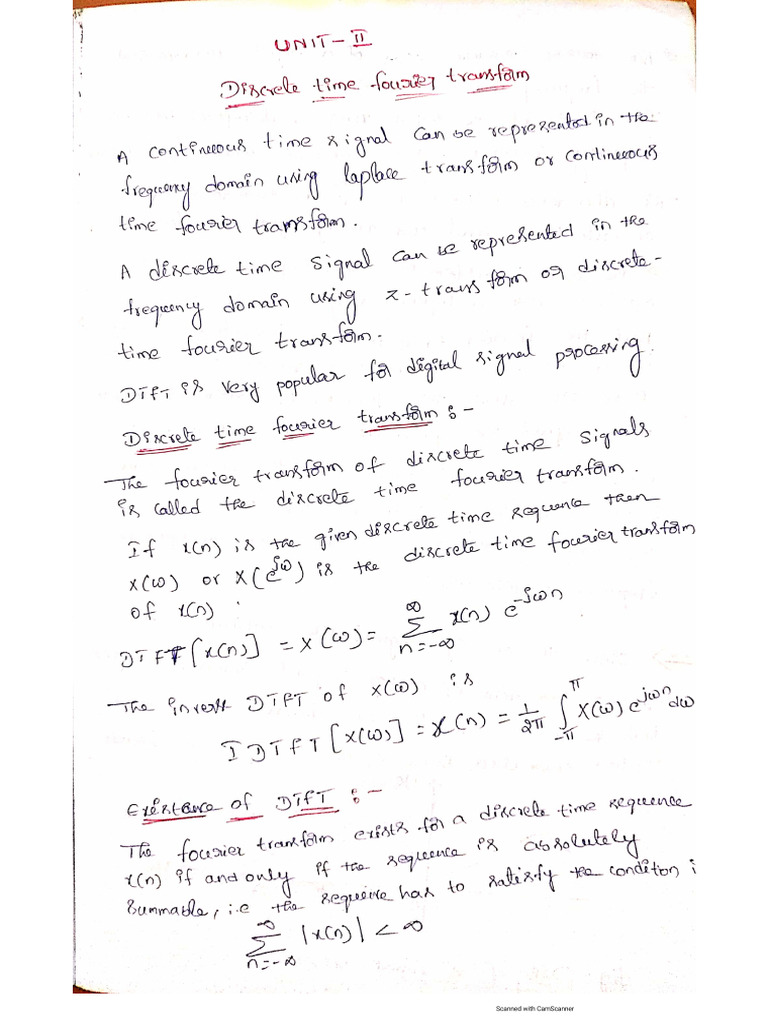 UNIT-II
Discrete time fourier transform
A continuous time signal can be represented in the
frequency domain using laplace transform or continuous
time fourier transform.
A discrete time signal can be represented in the
frequency domain using z-transform or discrete-
time fourier transform.
DTFT is very popular for digital signal processing.
Discrete time fourier transform :-
The fourier transform of discrete time signals
is called the discrete time fourier transform.
If x(n) is the given discrete time sequence then
X(ω) or X(e^jω) is the discrete time fourier transform
of x(n).
DTFT[x(n)] = X(ω) = ∑_{n=-∞}^{∞} x(n) e^{-jωn}
The inverse DTFT of X(ω) is
IDTFT[X(ω)] = x(n) = 1/2π ∫_{-π}^{π} X(ω) e^{jωn} dω
Existance of DTFT :-
The fourier transform exists for a discrete time sequence
x(n) if and only if the sequence is absolutely
summable, i.e the sequence has to satisfy the conditon :
∑_{n=-∞}^{∞} |x(n)| < ∞
Scanned with CamScanner